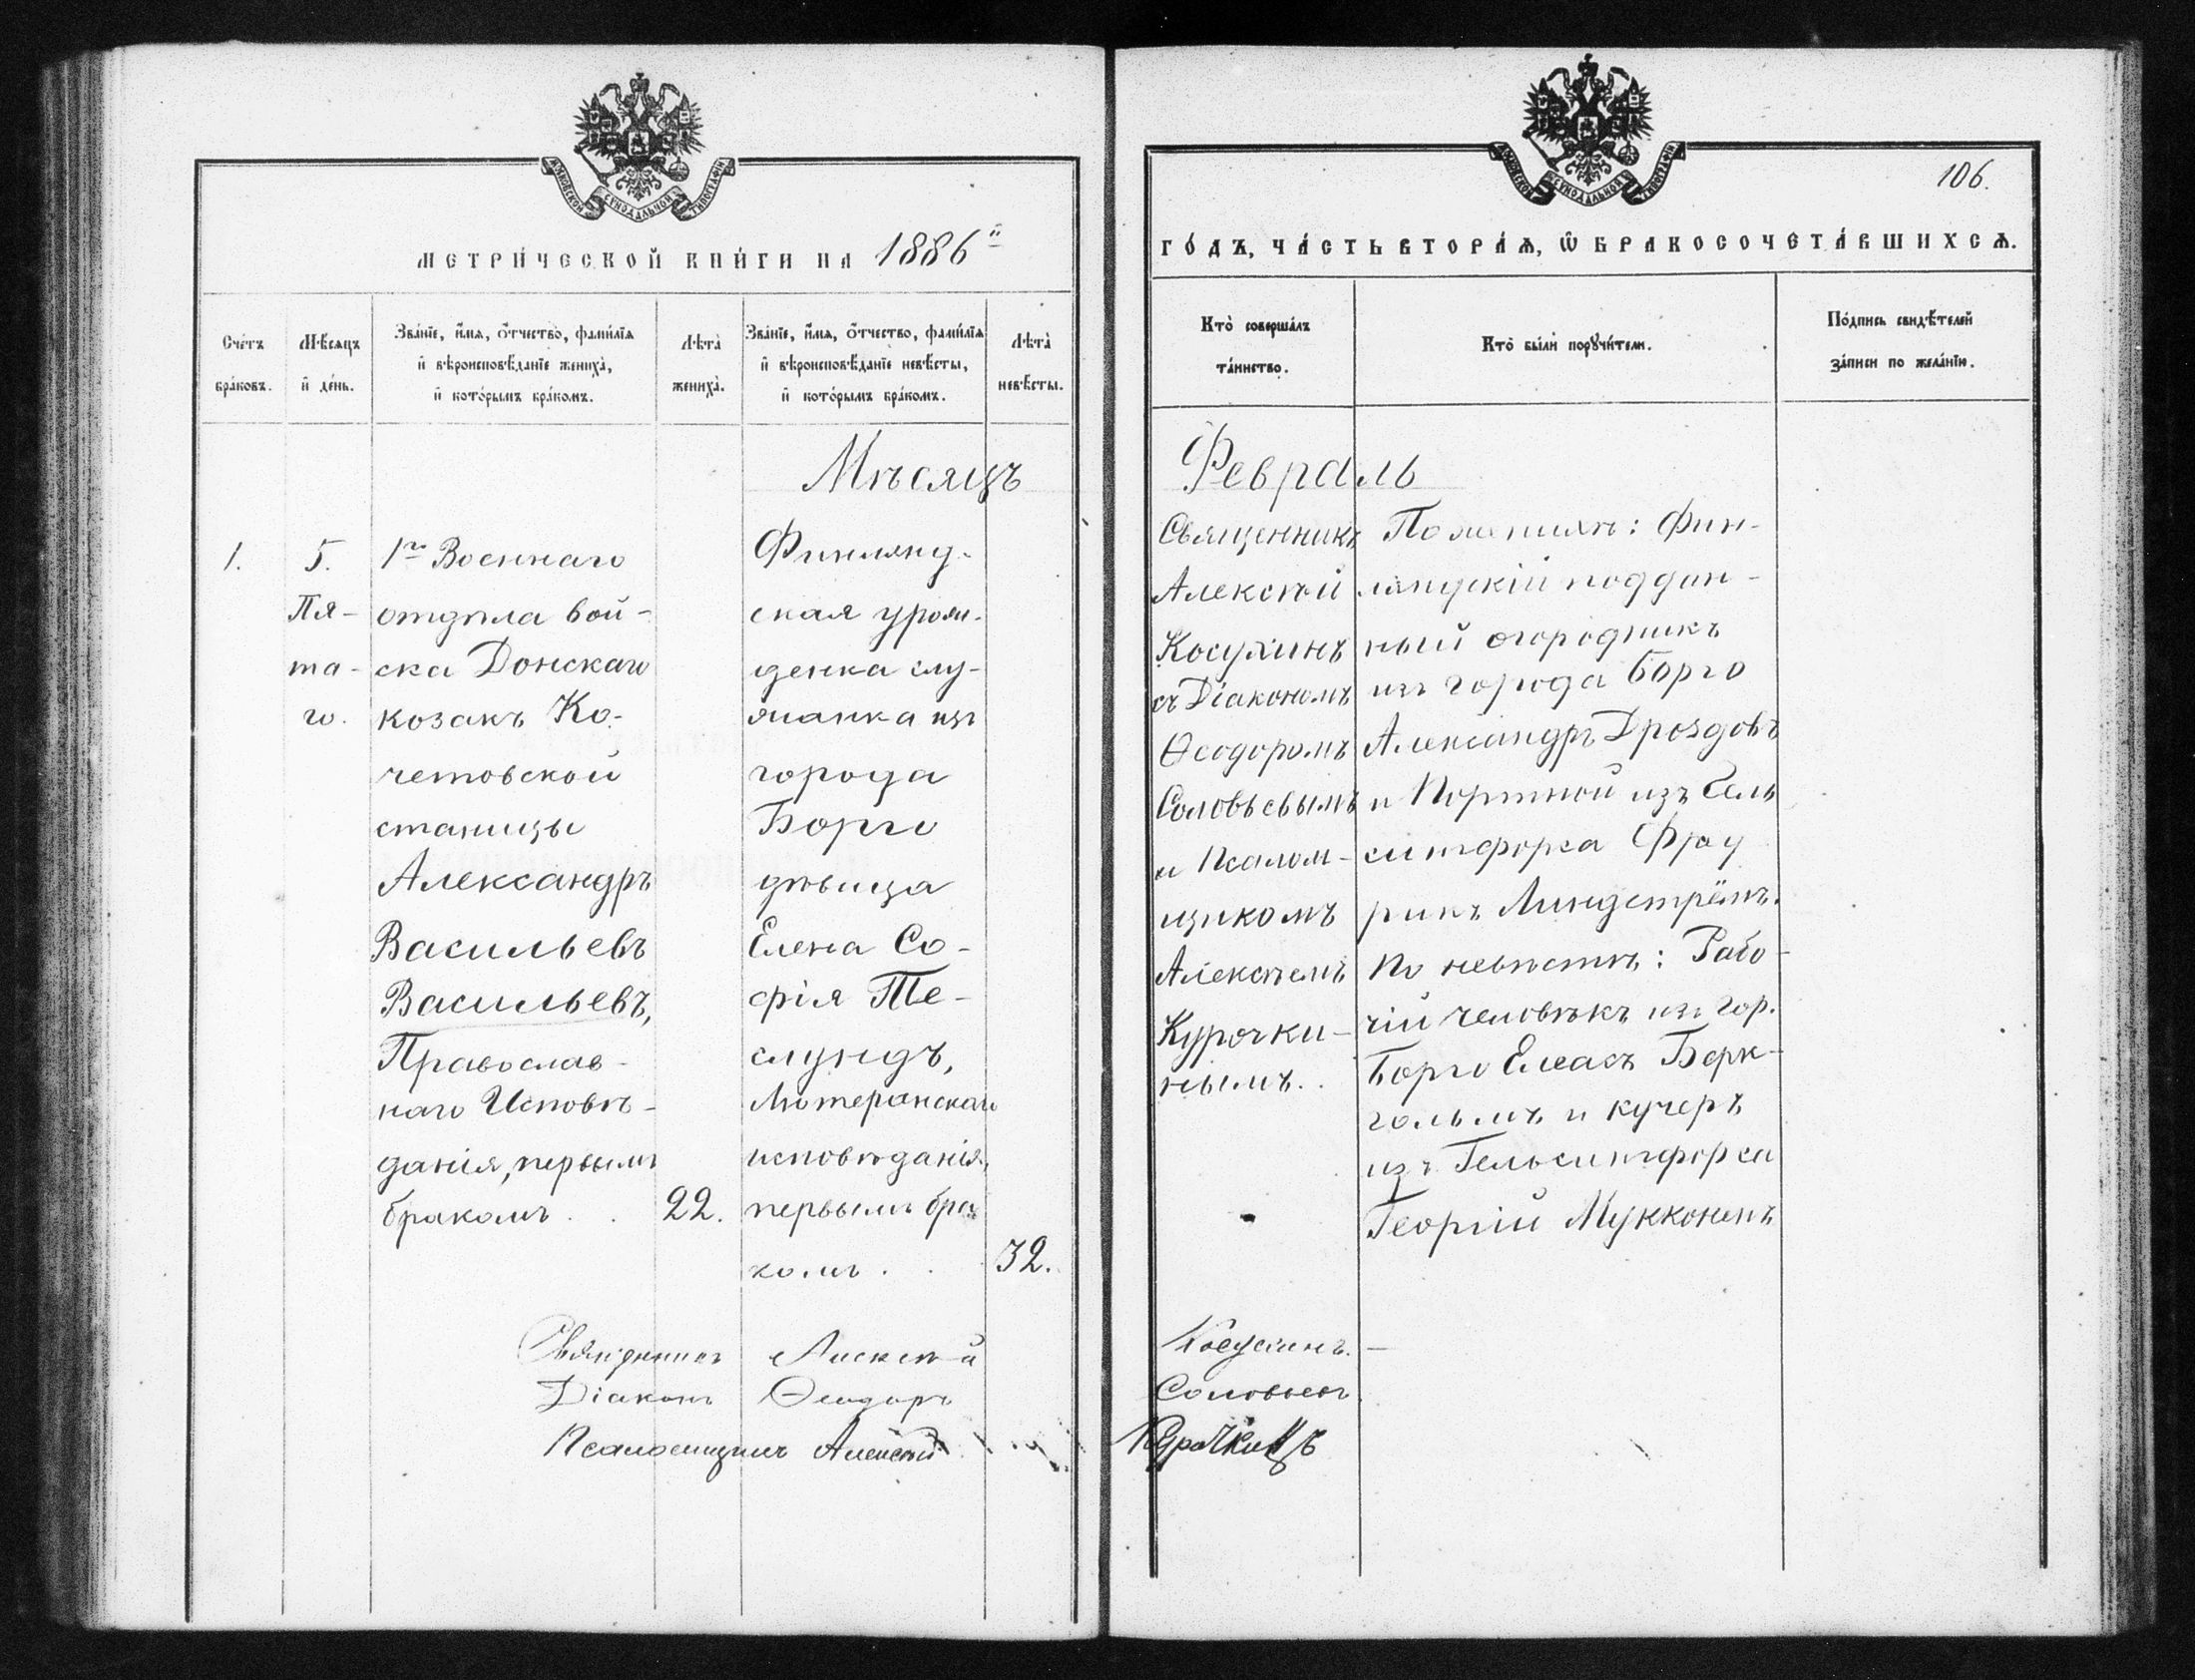 МОСКОВСКОЙ СѴНОДАЛЬНОЙ ТИПОГРАФІИ
МЕТРИ́ЧЕСКОЙ КНИ́ГИ НА 1886й
Сче́тъ бра́ковъ.
Мѣ́сяцъ и҆ де́нь.
Зва́нїе, и҆́мѧ, ѻ҆́тчество, фами́лїѧ
и҆ вѣроисповѣ́данїе жениха̀,
и҆ кото́рымъ бра́комъ.
Лѣ́та̀ жениха̀.
Зва́нїе, и҆́мѧ, ѻ҆́тчество, фами́лїѧ
и҆ вѣроисповѣ́данїе невѣ́сты,
и҆ кото́рымъ бра́комъ.
Лѣ́та̀ невѣ́сты.
Мѣсяцъ
1.
5.
Пя-
та-
го.
1го Военнаго
отдѣла вой-
ска Донскаго
козакъ Ко-
четовской
станицы
Александръ
Васильевъ
Васильевъ,
Православ-
наго Исповѣ-
данія, первымъ
бракомъ . .
22.
Финлянд-
ская урож-
денка слу-
жанка изъ
города
Борго
дѣвица
Елена Со-
фія Те-
слундъ,
Лютеранскаго
исповѣданія,
первымъ бра-
комъ . .
32.
Священникъ Алексѣй
Діаконъ Ѳеодоръ
Псаломщикъ Алексѣй
МОСКОВСКОЙ СѴНОДАЛЬНОЙ ТИПОГРАФІИ
106.
ГО́ДЪ, ЧА́СТЬ ВТОРА́Ѧ, Ѽ БРАКОСОЧЕТА́ВШИХСѦ.
Кто̀ соверша́лъ
та́инство.
Кто̀ бы́ли порꙋчи́тели.
По́дпись свидѣ́телей
за́писи по жела́нїю.
Февраль
Священникъ
Алексѣй
Косухинъ
съ Діакономъ
Ѳеодоромъ
Соловьевымъ
и Псалом-
щикомъ
Алексѣемъ
Курочки-
нымъ. .
По женихѣ: Фин-
ляндскій поддан-
ный огородникъ
изъ города Борго
Александръ Дроздовъ
и Портной изъ Гель
сингфорса Фрид
рикъ Линдстрёмъ.
По невѣстѣ: Рабо-
чій человѣкъ изъ гор.
Борго Елеасъ Берк-
гольмъ и кучеръ
изъ Гельсингфорса
Георгій Мукконенъ
Косухинъ. –
Соловьевъ
Курочкинъ